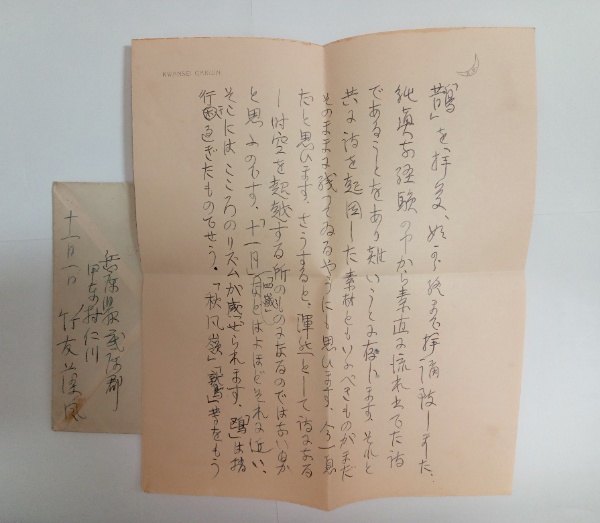 KWANSEI GAKUIN
「鵲」を拝受、始より終まで拝誦致しました。
純真な経験の中から素直に流れ出でた詩
であることをあり難いことに存じます。それと
共に詩を起した素材ともいふべきものがまだ
そのままに残つてゐるやうにも思ひます。今一息
だと思ひます。さうすると、渾然として詩になる
―時空を超越する所のものになるのではないか
と思ふのです。「十一月」「四歳」などはよほどそれに近い、
そこにはこころのリズムが感ぜられます。は
行き過ぎたものでせう。「秋風嶺」「鵲」等をもう
兵庫県武庫郡
甲東村仁川
竹友藻風
十一月一日